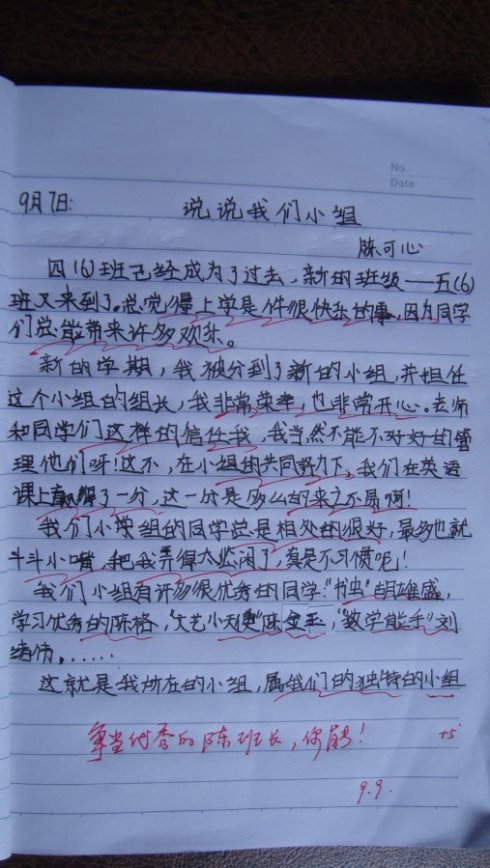 No.
Date
9月7日: 说说我们小组
陈可心
四(6)班已经成为了过去,新的班级——五(6)
班又来到了。总觉得上学是件很快乐的事,因为同学
们总能带来许多欢乐。
新的学期,我被分到了新的小组,并担任
这个小组的组长,我非常荣幸,也非常开心。老师
和同学们这样的信任我,我当然不能不好好的管
理他们呀!这不,在小组的共同努力下,我们在英语
课上赢得了一分,这一分是多么的来之不易啊!
我们小组的同学总是相处的很好,最多也就
斗斗小嘴,把我弄得太悠闲了,真是不习惯呢!
我们小组有许多很优秀的同学:"书虫"胡雄盛,
学习优秀的陈格,"文艺小天使"陈金玉,"数学能手"刘
绪伟,……
这就是我所在的小组,属我们的独特的小组
争当优秀的陈班长,你能!
+5
9.9.